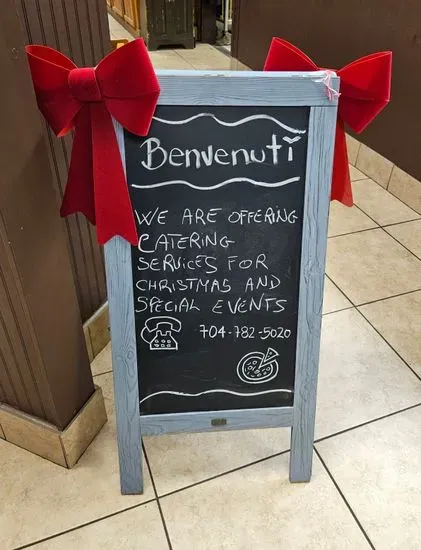 Benvenuti
WE ARE OFFERING
CATERING
SERVICES FOR
CHRISTMAS AND
SPECIAL EVENTS
704-782-5020